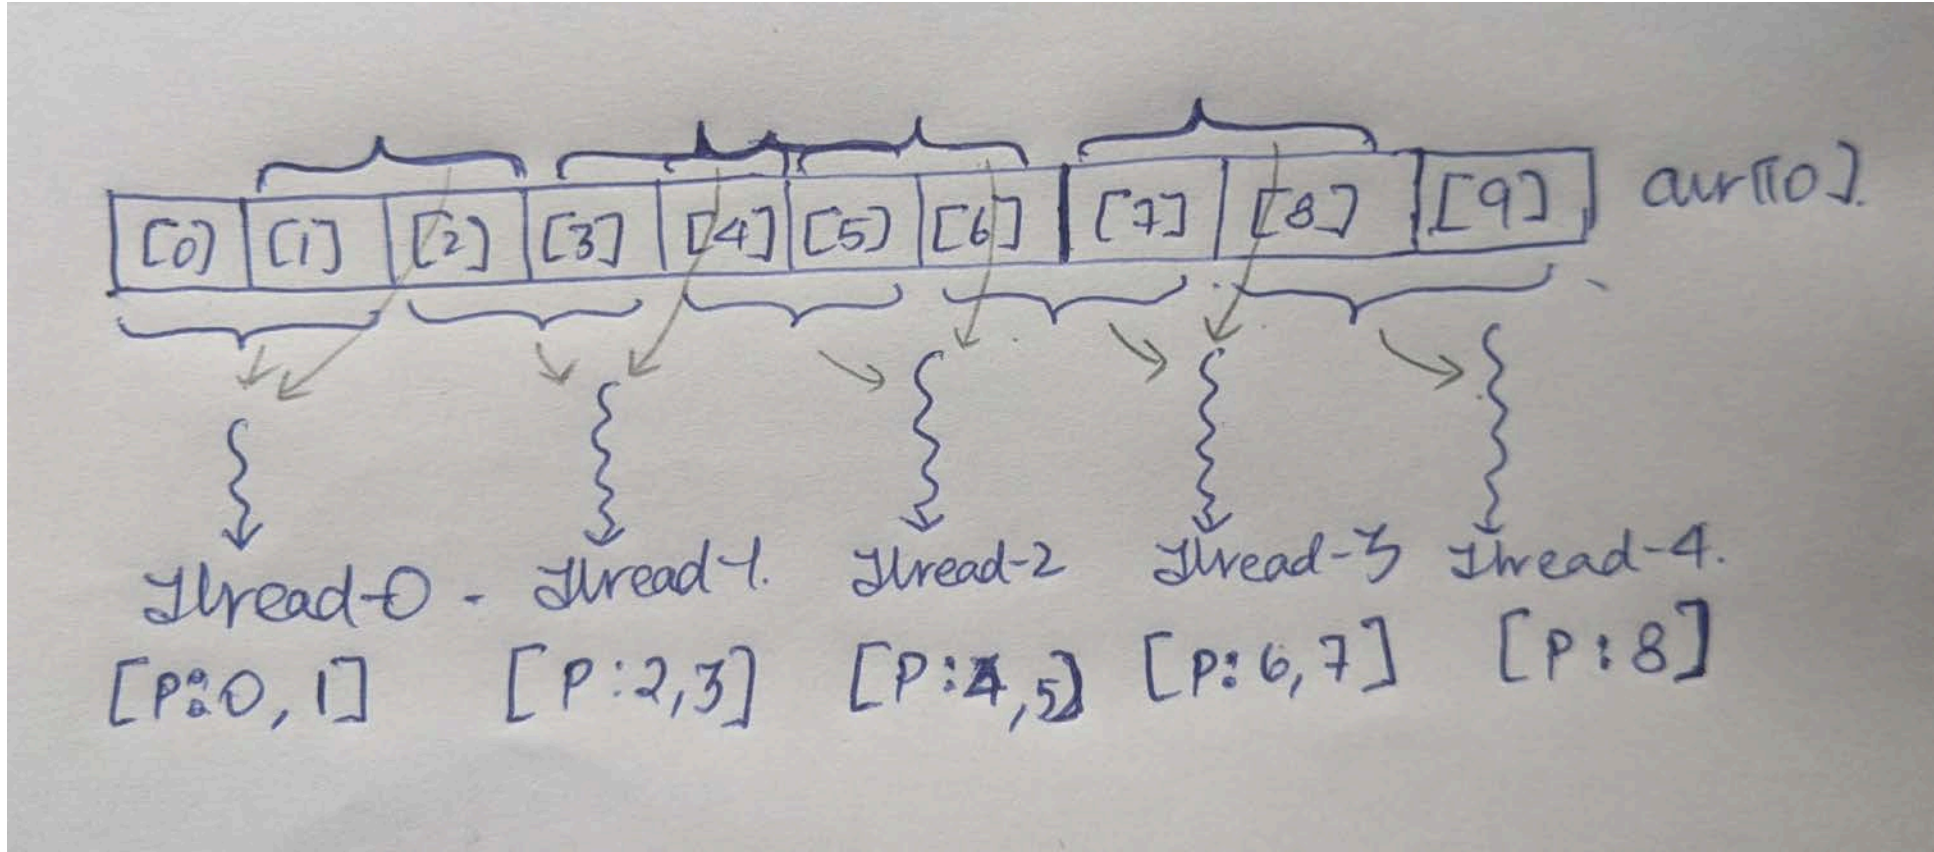 [0] [1] [2] [3] [4] [5] [6] [7] [8] [9] arr[10].
Thread-0 - Thread-1. Thread-2 Thread-3 Thread-4.
[P:0, 1] [P:2,3] [P:4,5] [P:6,7] [P:8]